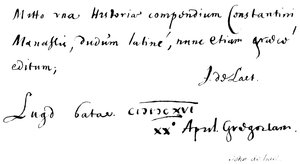 Mitto una Historiæ compendium Constantini
Manassis, dudum latinè, nunc etiam græcè
editum;
J. de Laet.
Lugd. batav. CIↃIↃCXVI
XX° April. Gregorian.